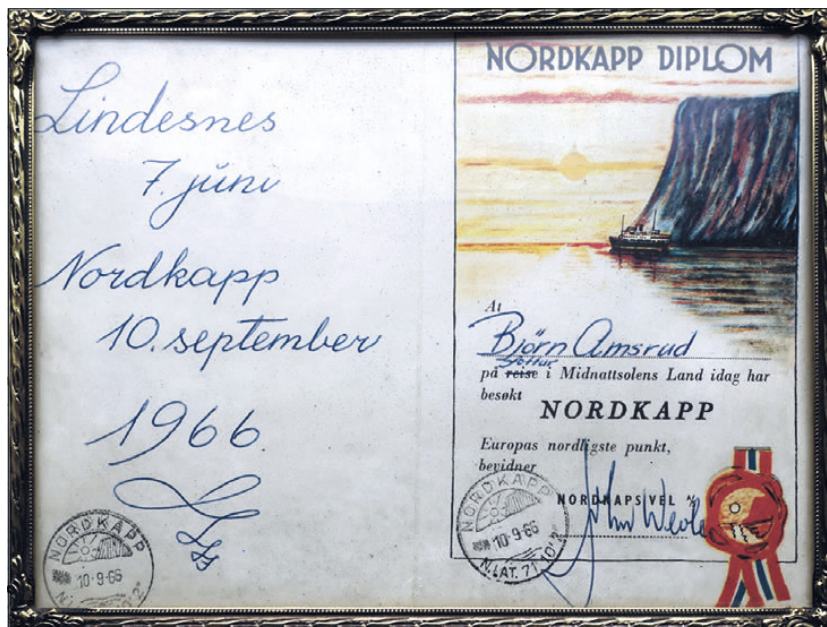 Lindesnes
7. juni
Nordkapp
10. september
1966
NORDKAPP
10-9-66
NORDKAPP DIPLOM
At
Bjørn Amsrud
på reise i Midnattsolens Land idag har
besøkt
NORDKAPP
Europas nordligste punkt,
bevidner
NORDKAPS VEL A/S
NORDKAPP
10-9-66
N.LAT. 71°10'2"